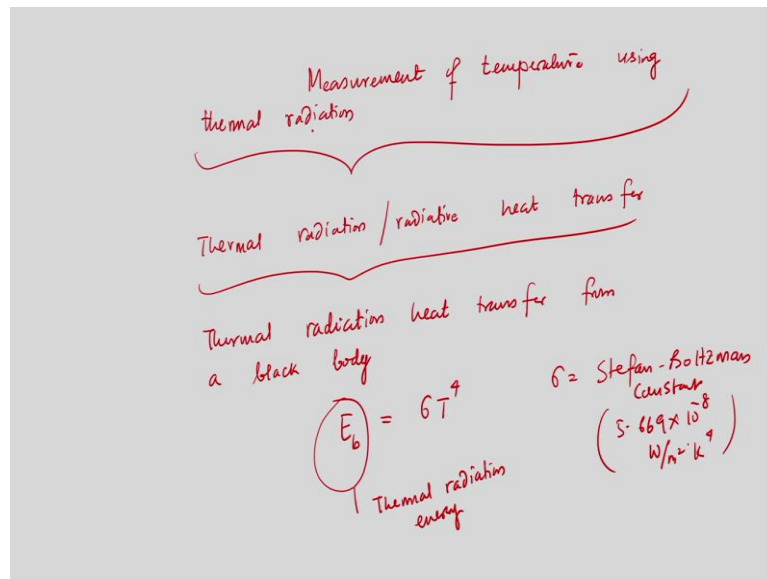 Measurement of temperature using
thermal radiation
Thermal radiation / radiative heat transfer
Thermal radiation heat transfer from
a black body
E_b = σT^4
Thermal radiation
energy
σ = Stefan-Boltzman
Constant
(5.669 × 10^-8
W/m² K^4)